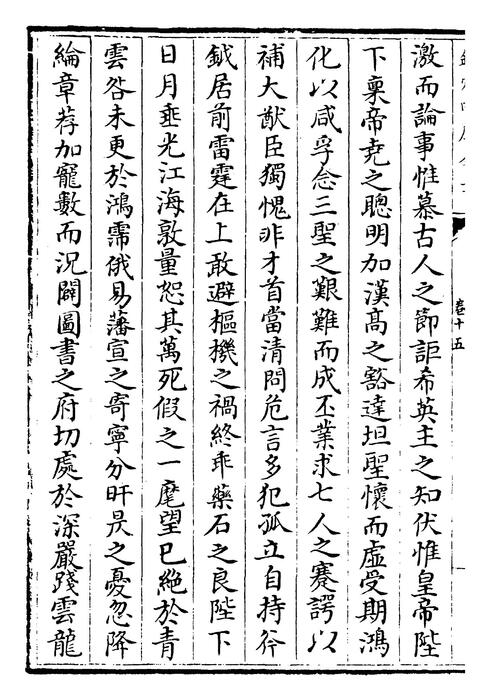 卷十五
激而論事惟慕古人之節詎希英主之知伏惟皇帝陛
下稟帝堯之聰明加漢高之豁達坦聖懷而虛受期鴻
化以咸孚念三聖之艱難而成丕業求七人之蹇諤以
補大猷臣獨愧非才首當清問危言多犯孤立自持斧
鉞居前雷霆在上敢避樞機之禍終乖藥石之良陛下
日月垂光江海敦量恕其萬死假之一麾望已絶於青
雲咎未更於鴻霈俄易藩宣之寄寧分旰昃之憂忽降
綸章荐加寵數而況闢圖書之府切處於深嚴踐雲龍